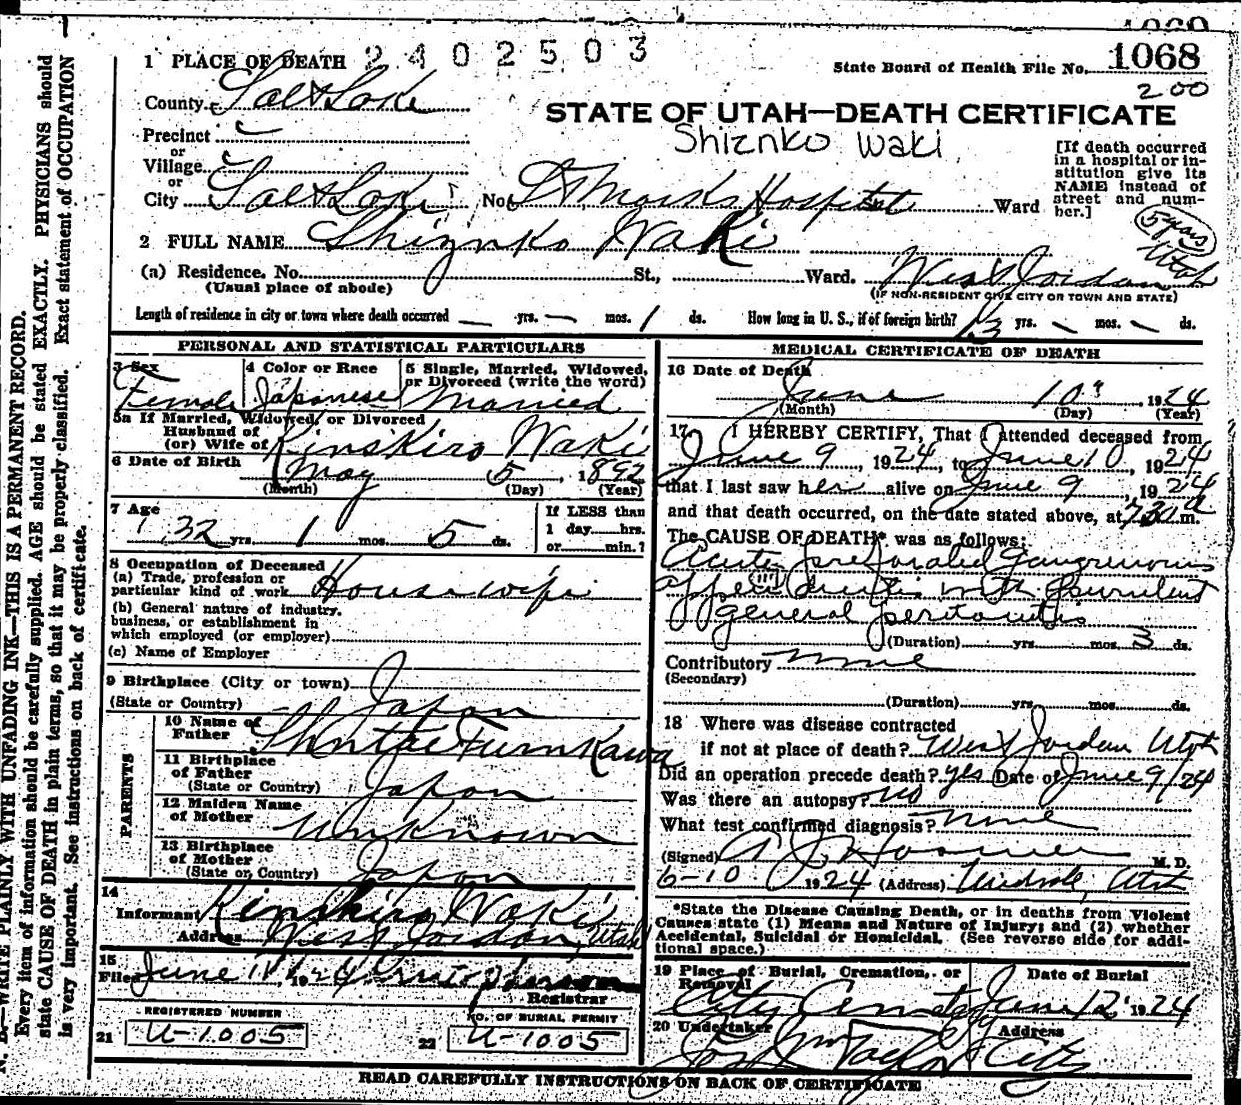 1068
2402503
1 PLACE OF DEATH
State Board of Health File No. 1068
200
County Salt Lake
STATE OF UTAH—DEATH CERTIFICATE
Shiznko Waki
Precinct
or
Village
or
City Salt Lake No. St Marks Hospital Ward
[If death occurred in a hospital or institution give its NAME instead of street and number.]
2 FULL NAME Shiznko Waki
5 years Utah
(a) Residence. No. St., Ward. West Jordan
(Usual place of abode)
(IF NON-RESIDENT GIVE CITY OR TOWN AND STATE)
Length of residence in city or town where death occurred — yrs. — mos. 1 ds. How long in U. S., if of foreign birth? 13 yrs. — mos. — ds.
PERSONAL AND STATISTICAL PARTICULARS
3 Sex
Female
4 Color or Race
Japanese
5 Single, Married, Widowed, or Divorced (write the word)
Married
5a If Married, Widowed, or Divorced
Husband of
(or) Wife of Kinshiro Waki
6 Date of Birth
May 5, 1892
(Month) (Day) (Year)
7 Age
32 yrs. 1 mos. 5 ds.
If LESS than
1 day......hrs.
or......min.?
8 Occupation of Deceased
(a) Trade, profession or
particular kind of work Housewife
(b) General nature of industry,
business, or establishment in
which employed (or employer)
(c) Name of Employer
9 Birthplace (City or town)
(State or Country) Japan
PARENTS
10 Name of
Father Furukawa
11 Birthplace
of Father
(State or Country) Japan
12 Maiden Name
of Mother Unknown
13 Birthplace
of Mother
(State or Country) Japan
14
Informant Kinshiro Waki
Address West Jordan, Utah
15
Filed June 11, 1924
Registrar
REGISTERED NUMBER
21 U-1005
NO. OF BURIAL PERMIT
22 U-1005
MEDICAL CERTIFICATE OF DEATH
16 Date of Death
June 10, 1924
(Month) (Day) (Year)
17 I HEREBY CERTIFY, That I attended deceased from
June 9, 1924, to June 10, 1924
that I last saw her alive on June 9, 1924
and that death occurred, on the date stated above, at 7:30 a m.
The CAUSE OF DEATH* was as follows:
Acute perforated Gangrenous
appendicitis with purulent
general peritonitis
(Duration) yrs. mos. 3 ds.
Contributory None
(Secondary)
(Duration) yrs. mos. ds.
18 Where was disease contracted
if not at place of death? West Jordan Utah
Did an operation precede death? yes Date of June 9/24
Was there an autopsy? no
What test confirmed diagnosis? None
(Signed) M. D.
6-10, 1924 (Address) Midvale, Utah
*State the Disease Causing Death, or in deaths from Violent
Causes state (1) Means and Nature of Injury; and (2) whether
Accidental, Suicidal or Homicidal. (See reverse side for additional space.)
19 Place of Burial, Cremation, or
Removal
City Cemetery
Date of Burial
June 12 1924
20 Undertaker
Taylor
Address
City
READ CAREFULLY INSTRUCTIONS ON BACK OF CERTIFICATE
N. B.—WRITE PLAINLY WITH UNFADING INK—THIS IS A PERMANENT RECORD.
Every item of information should be carefully supplied. AGE should be stated EXACTLY. PHYSICIANS should
state CAUSE OF DEATH in plain terms, so that it may be properly classified. Exact statement of OCCUPATION
is very important. See instructions on back of certificate.